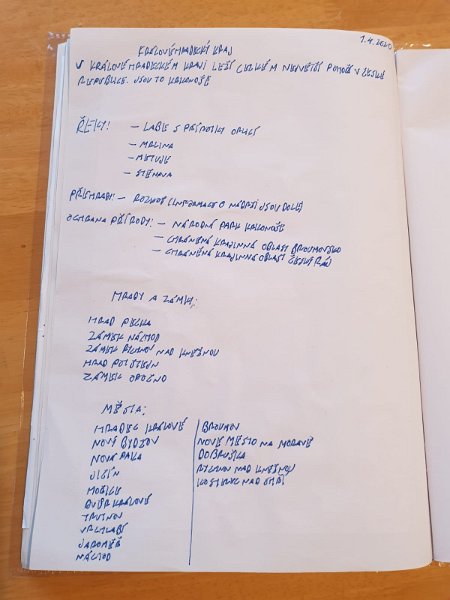 1.4.2020
KRÁLOVÉHRADECKÝ KRAJ
V KRÁLOVÉHRADECKÉM KRAJI LEŽÍ CELKEM NEJVĚTŠÍ POHOŘÍ V ČESKÉ
REPUBLICE. JSOU TO KRKONOŠE
ŘEKY: - LABE S PŘÍTOKY ORLICÍ
- METUJE
- STĚNAVA
PŘEHRADY: - ROZKOŠ (INFORMACE O NÁDRŽI JSOU DOLE)
OCHRANA PŘÍRODY: - NÁRODNÍ PARK KRKONOŠE
- CHRÁNĚNÁ KRAJINNÁ OBLAST BROUMOVSKO
- CHRÁNĚNÁ KRAJINNÁ OBLAST ČESKÝ RÁJ
HRADY A ZÁMKY:
HRAD PECKA
ZÁMEK NÁCHOD
ZÁMEK RYCHNOV NAD KNĚŽNOU
HRAD POTŠTEJN
ZÁMEK OPOČNO
MĚSTA:
HRADEC KRÁLOVÉ
NOVÝ BYDŽOV
NOVÁ PAKA
JIČÍN
HOŘICE
DVŮR KRÁLOVÉ
TRUTNOV
VRCHLABÍ
JAROMĚŘ
NÁCHOD
BROUMOV
NOVÉ MĚSTO NA MORAVĚ
DOBRUŠKA
RYCHNOV NAD KNĚŽNOU
KOSTELEC NAD ORLICÍ